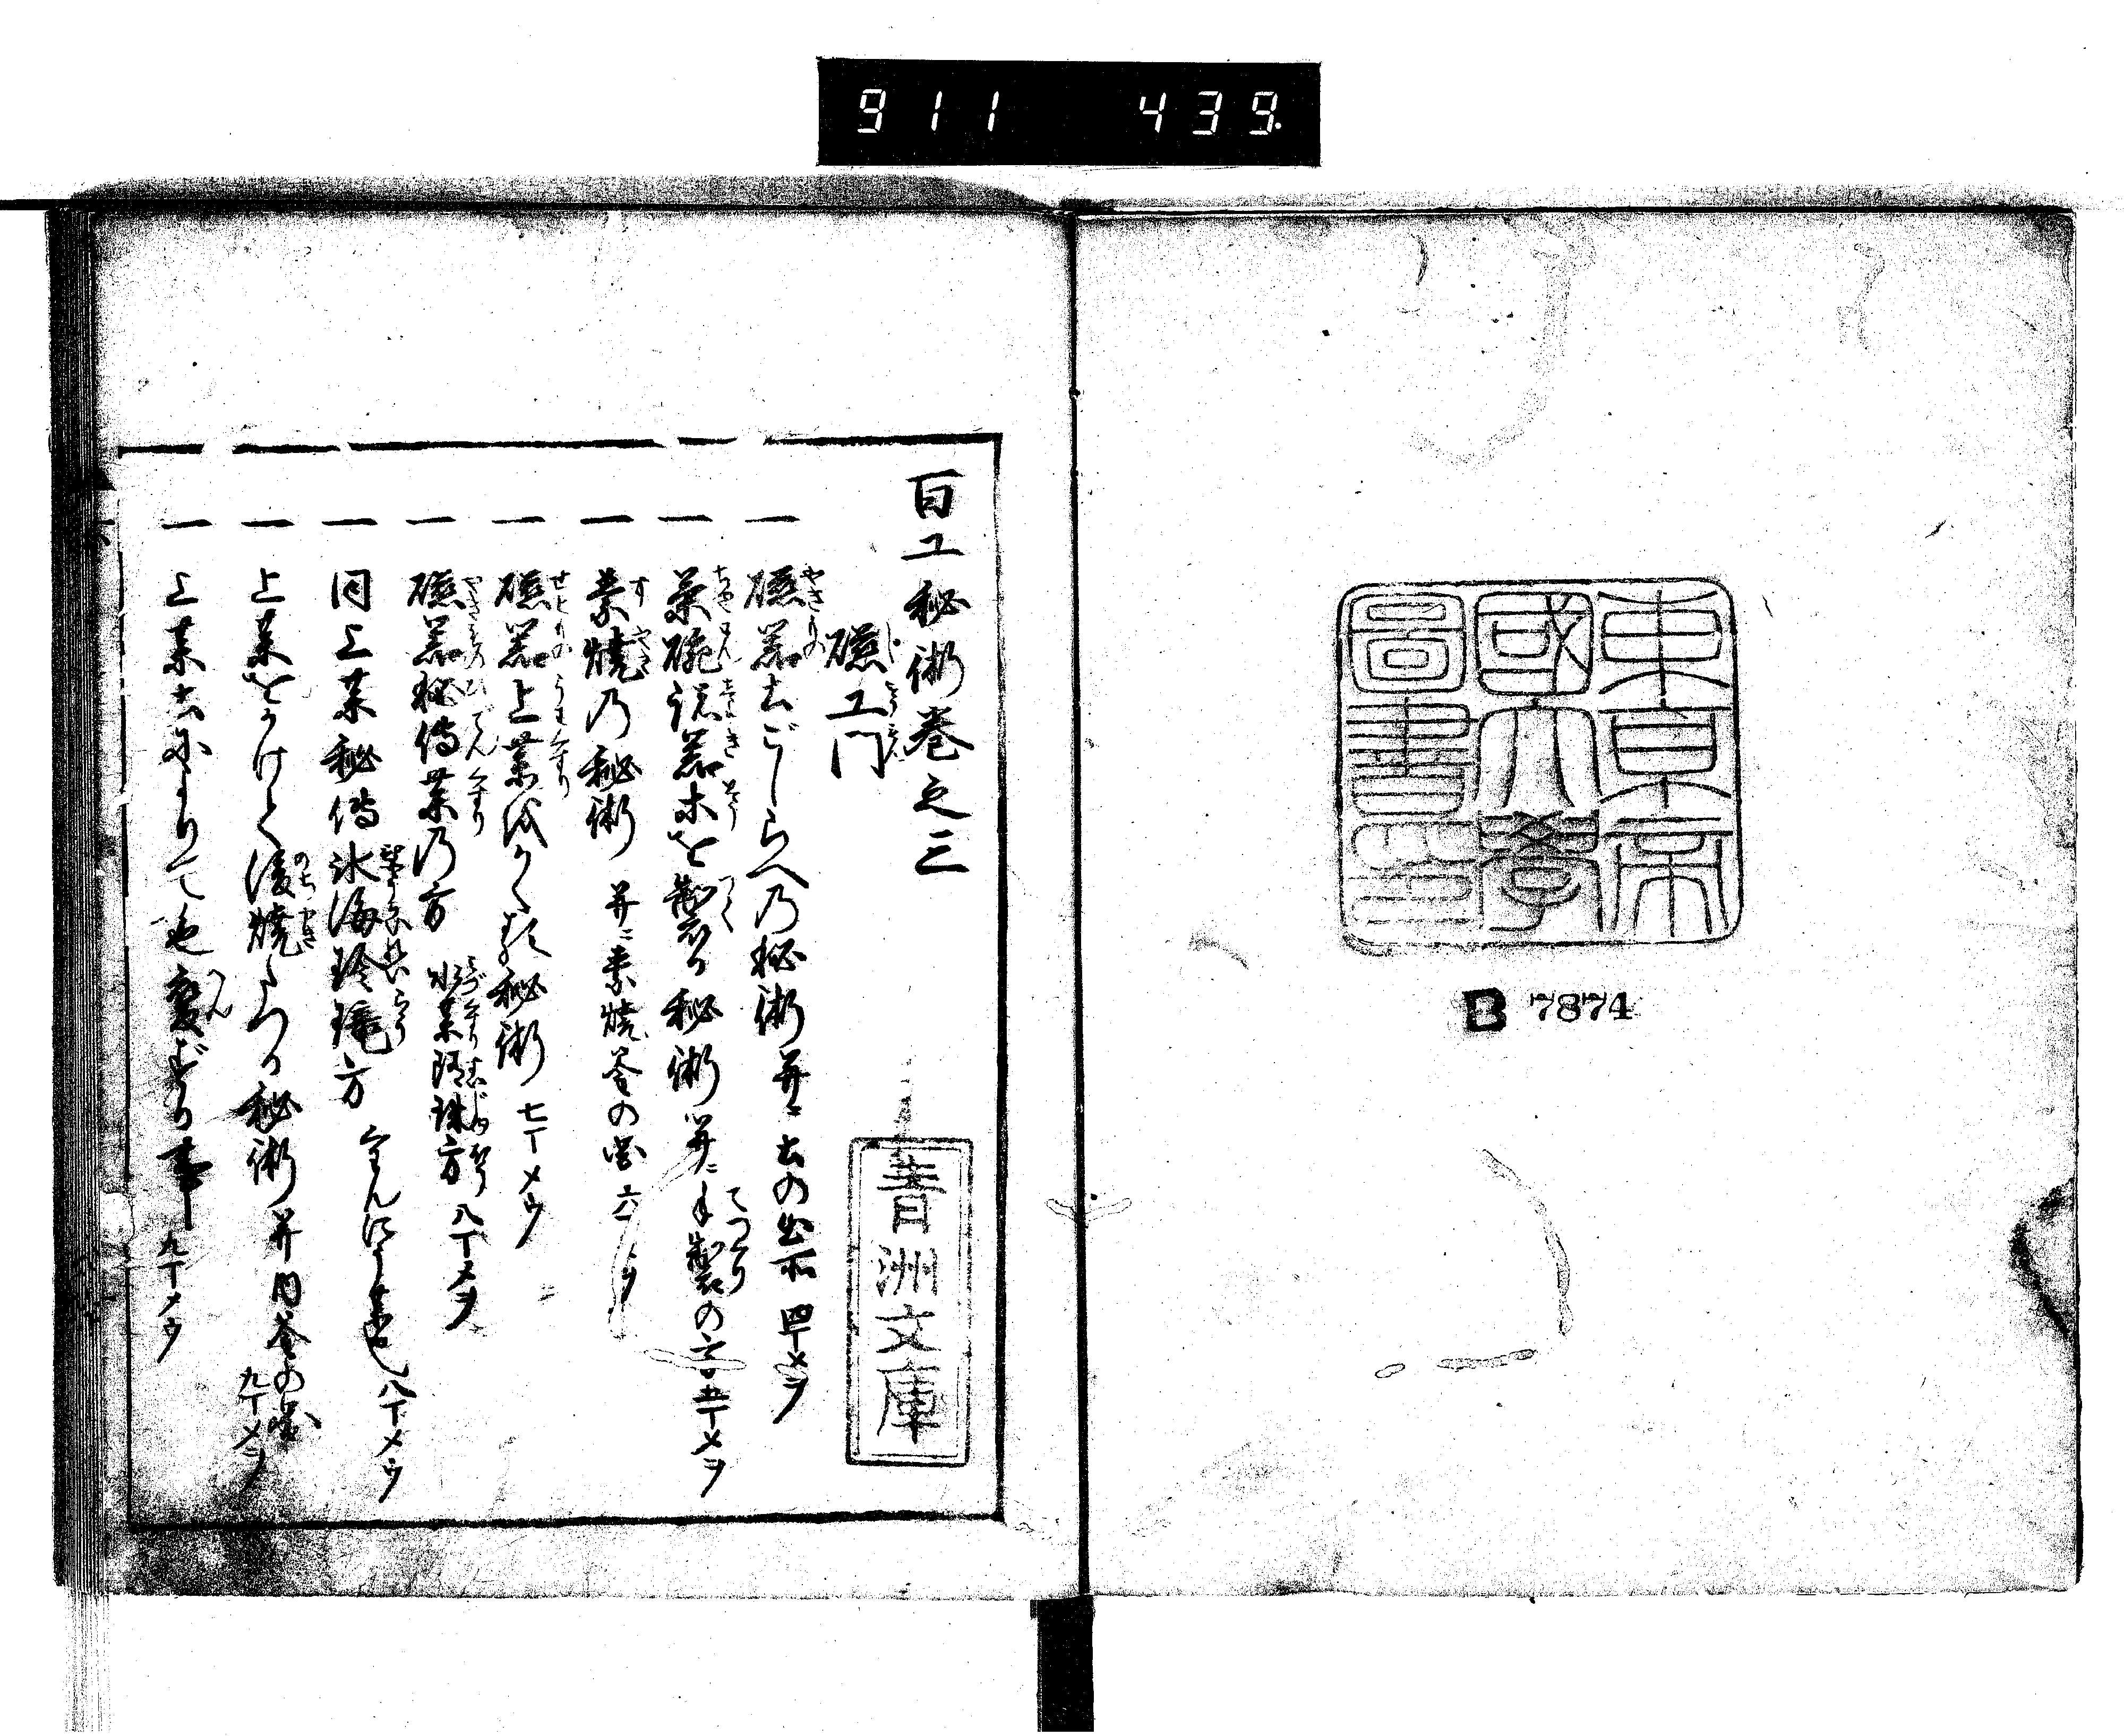 911 439.
東京帝
國大學
圖書印
B 7874
百工秘術巻之三
青洲文庫
礠工門
一 礠器土ごしらへ乃秘術 并ニ 土の出所 四丁メヲ
一 茶碗諸器木を製る秘術 并ニ 手製の 五丁メヲ
一 素焼乃秘術 并ニ 素焼釜の図 六
一 礠器上薬 秘術 七丁メウ
一 礠器秘傳薬乃方 水薬 珠方 八丁メヲ
一 同上薬秘傳氷海 方 八丁メウ
一 上薬をかけて後焼 秘術 并 同釜の図 九丁メヲ
一 上薬土によりて色変ずる事 九丁メウ